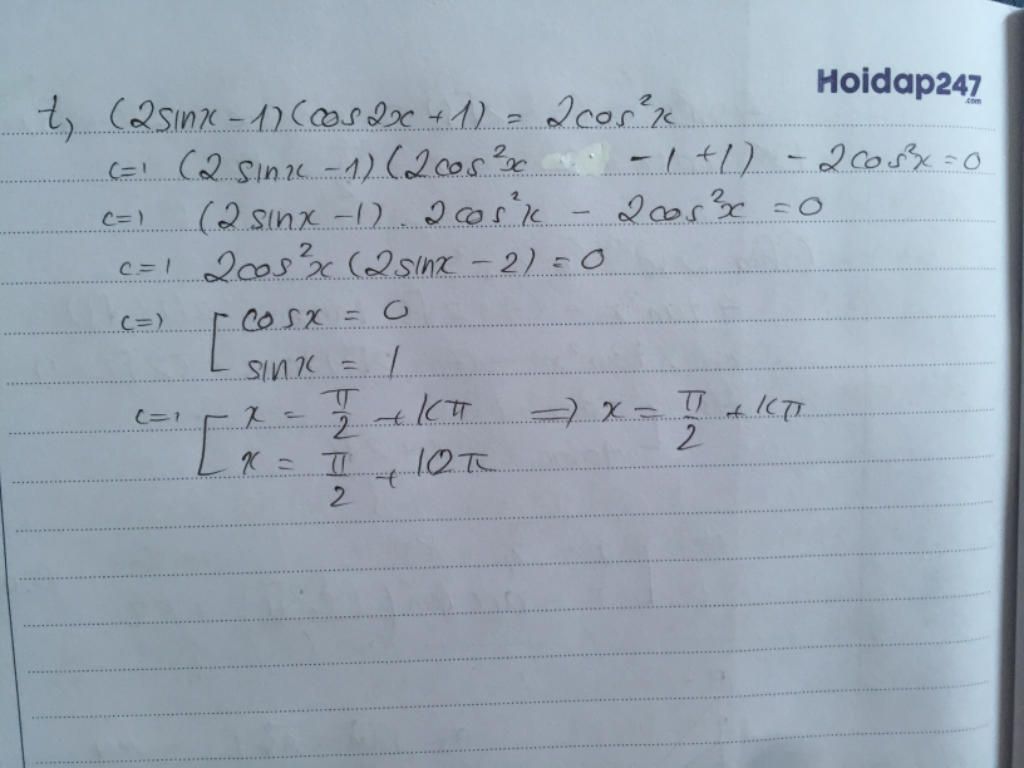 Hoidap247
.com
t, (2sinx - 1)(cos2x + 1) = 2cos²x
<=> (2sinx - 1)(2cos²x - 1 + 1) - 2cos²x = 0
<=> (2sinx - 1) . 2cos²x - 2cos²x = 0
<=> 2cos²x (2sinx - 2) = 0
<=> [ cosx = 0
sinx = 1
<=> [ x = π/2 + kπ => x = π/2 + kπ
x = π/2 + k2π